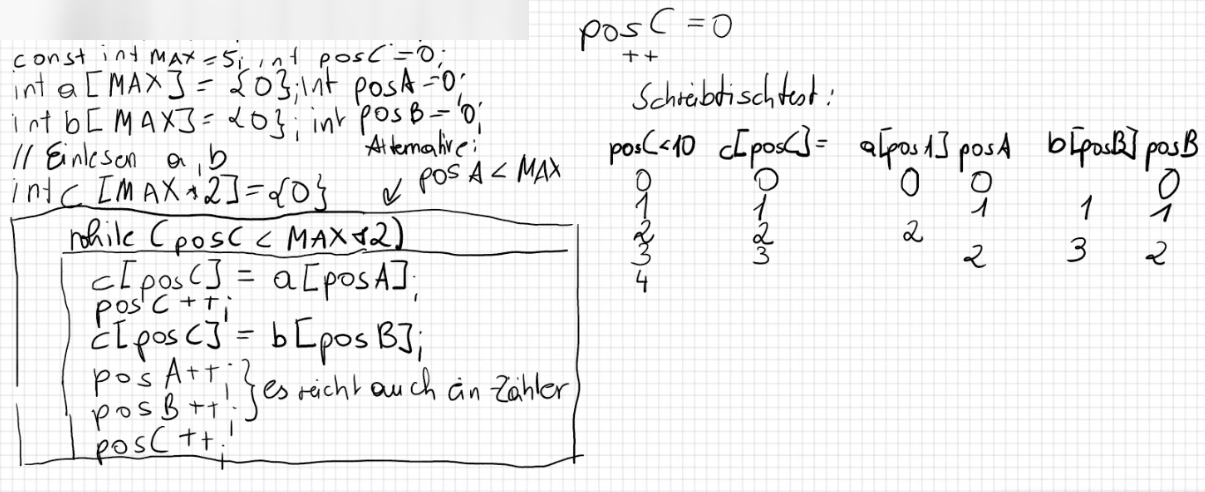 const int MAX = 5; int posC = 0;
int a [MAX] = {0}; int posA = 0;
int b [MAX] = {0}; int posB = 0;
// Einlesen a, b
Alternative:
int c [MAX * 2] = {0}
↙ posA < MAX
while (posC < MAX * 2)
c[posC] = a[posA];
posC ++;
c[posC] = b[posB];
posA ++;
posB ++;
} es reicht auch ein Zähler
posC ++;
posC = 0
++
Schreibtischtest:
posC<10 c[posC]= a[posA] posA b[posB] posB
0 0 0 0 0
1 1 1 1 1
2 2 2
3 3 2 3 2
4